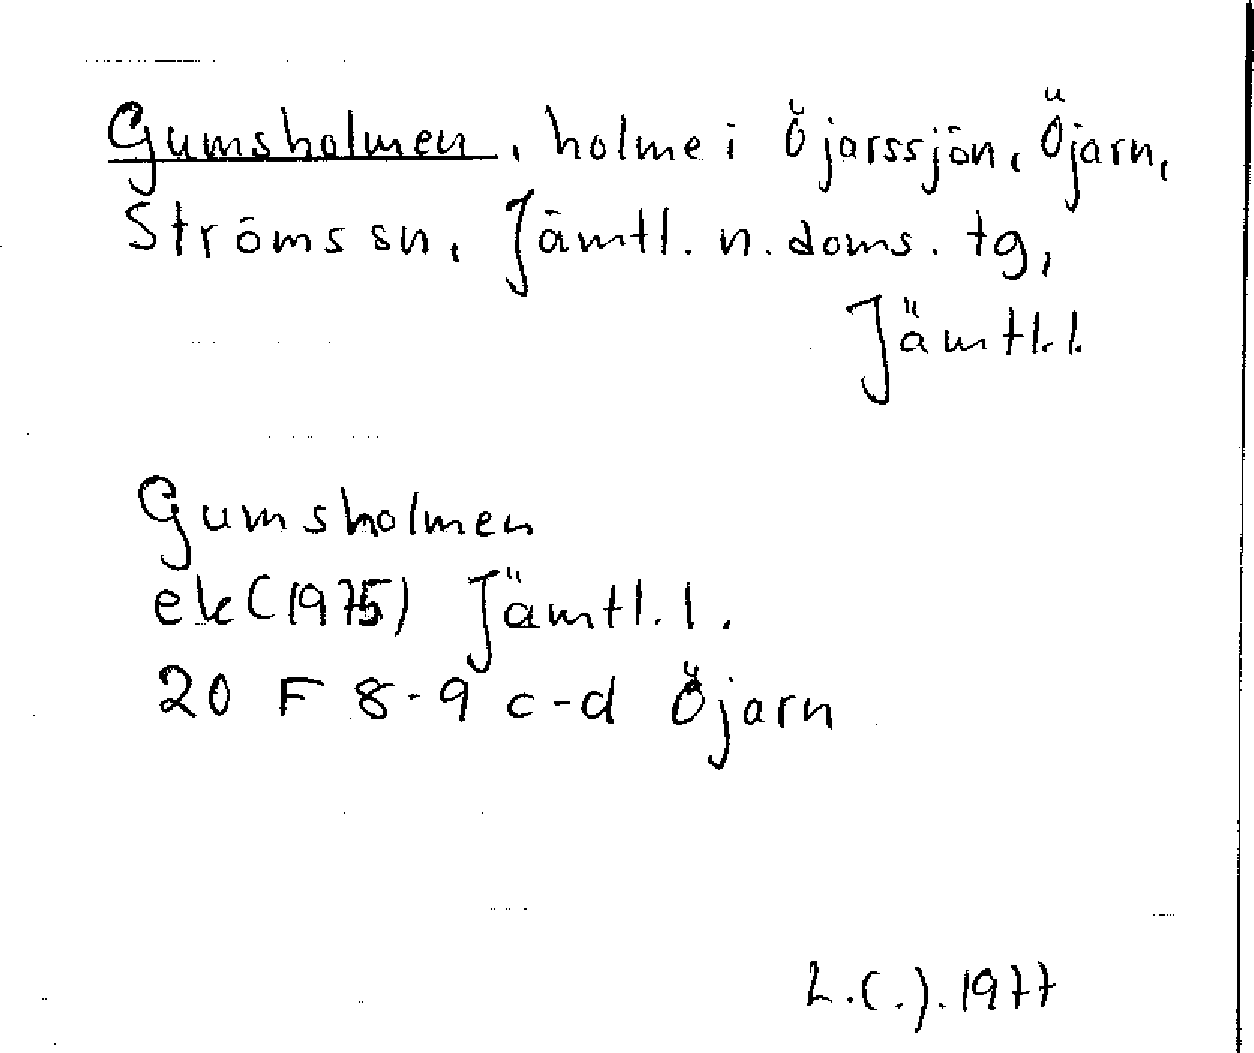 Gumsholmen, holme i Öjarssjön, Öjarn,
Ströms sn, Jämtl. n. doms. tg,
Jämtl.l.
Gumsholmen
ek (1975) Jämtl. l.
20 F 8-9 c-d Öjarn
1977